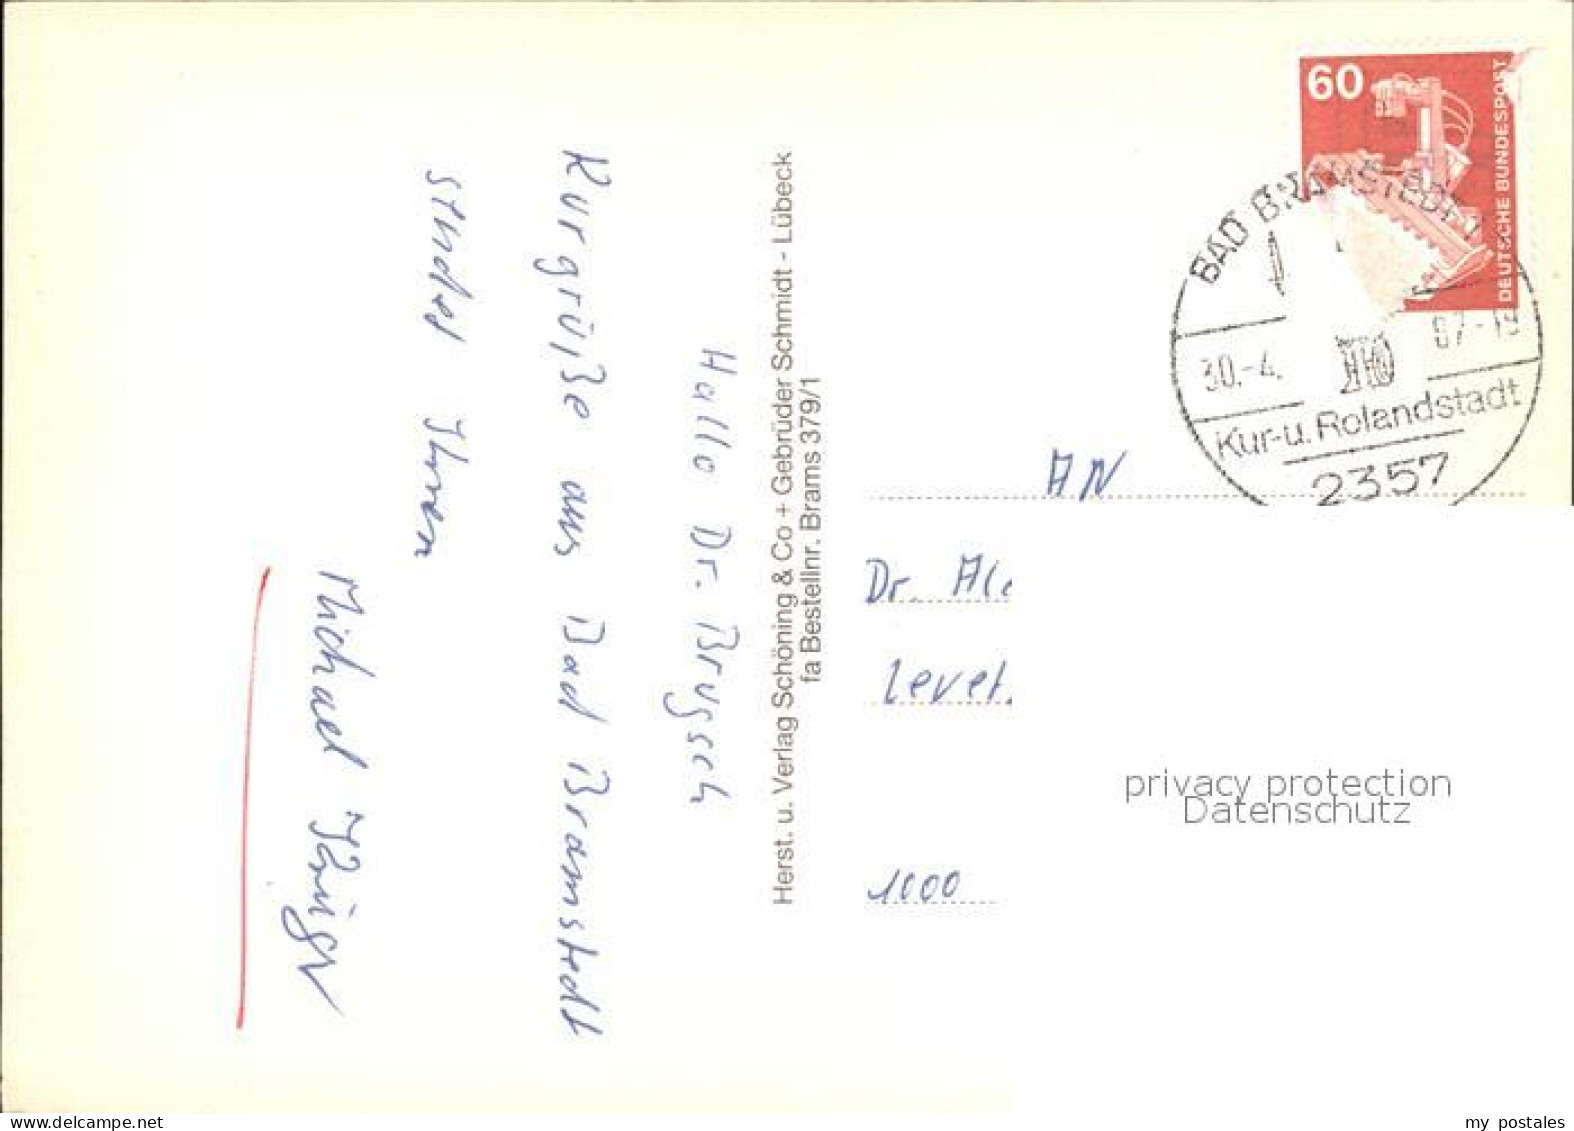 Hallo Dr. Brugsch
Kurgrüße aus Bad Bramstedt
sendet Ihnen
Michael
Herst. u. Verlag Schöning & Co + Gebrüder Schmidt - Lübeck
fa Bestellnr. Brams 379/1
60
DEUTSCHE BUNDESPOST
BAD BRAMSTEDT
30.-4.
Kur-u. Rolandstadt
2357
AN
Dr. Ale
Levet
1000
privacy protection
Datenschutz
my postales
www.delcampe.net